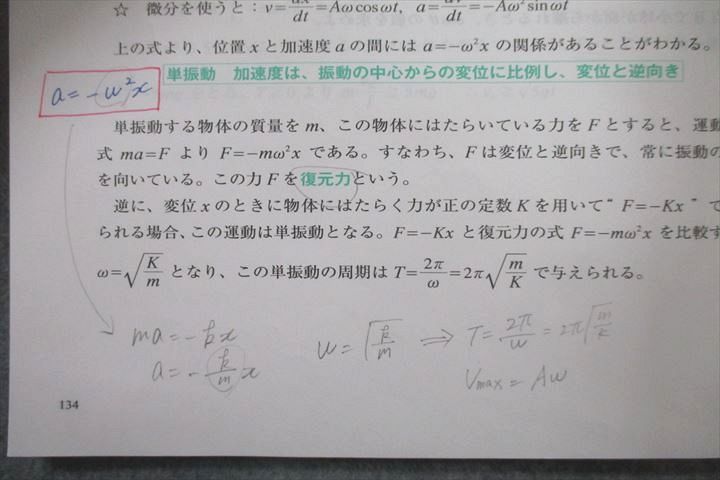 ☆ 微分を使うと：v=dx/dt=Aωcosωt, a=dv/dt=-Aω²sinωt
上の式より、位置 x と加速度 a の間には a=-ω²x の関係があることがわかる。
a=-ω²x
単振動 加速度は、振動の中心からの変位に比例し、変位と逆向き
単振動する物体の質量を m、この物体にはたらいている力を F とすると、運動
式 ma=F より F=-mω²x である。すなわち、F は変位と逆向きで、常に振動の
を向いている。この力 F を復元力という。
逆に、変位 x のときに物体にはたらく力が正の定数 K を用いて“ F=-Kx ” で
られる場合、この運動は単振動となる。F=-Kx と復元力の式 F=-mω²x を比較す
ω=√(K/m) となり、この単振動の周期は T=2π/ω=2π√(m/K) で与えられる。
ma=-kx
a=-(k/m)x
ω=√(k/m) ⇒ T=2π/ω=2π√(m/k)
Vmax=Aω
134